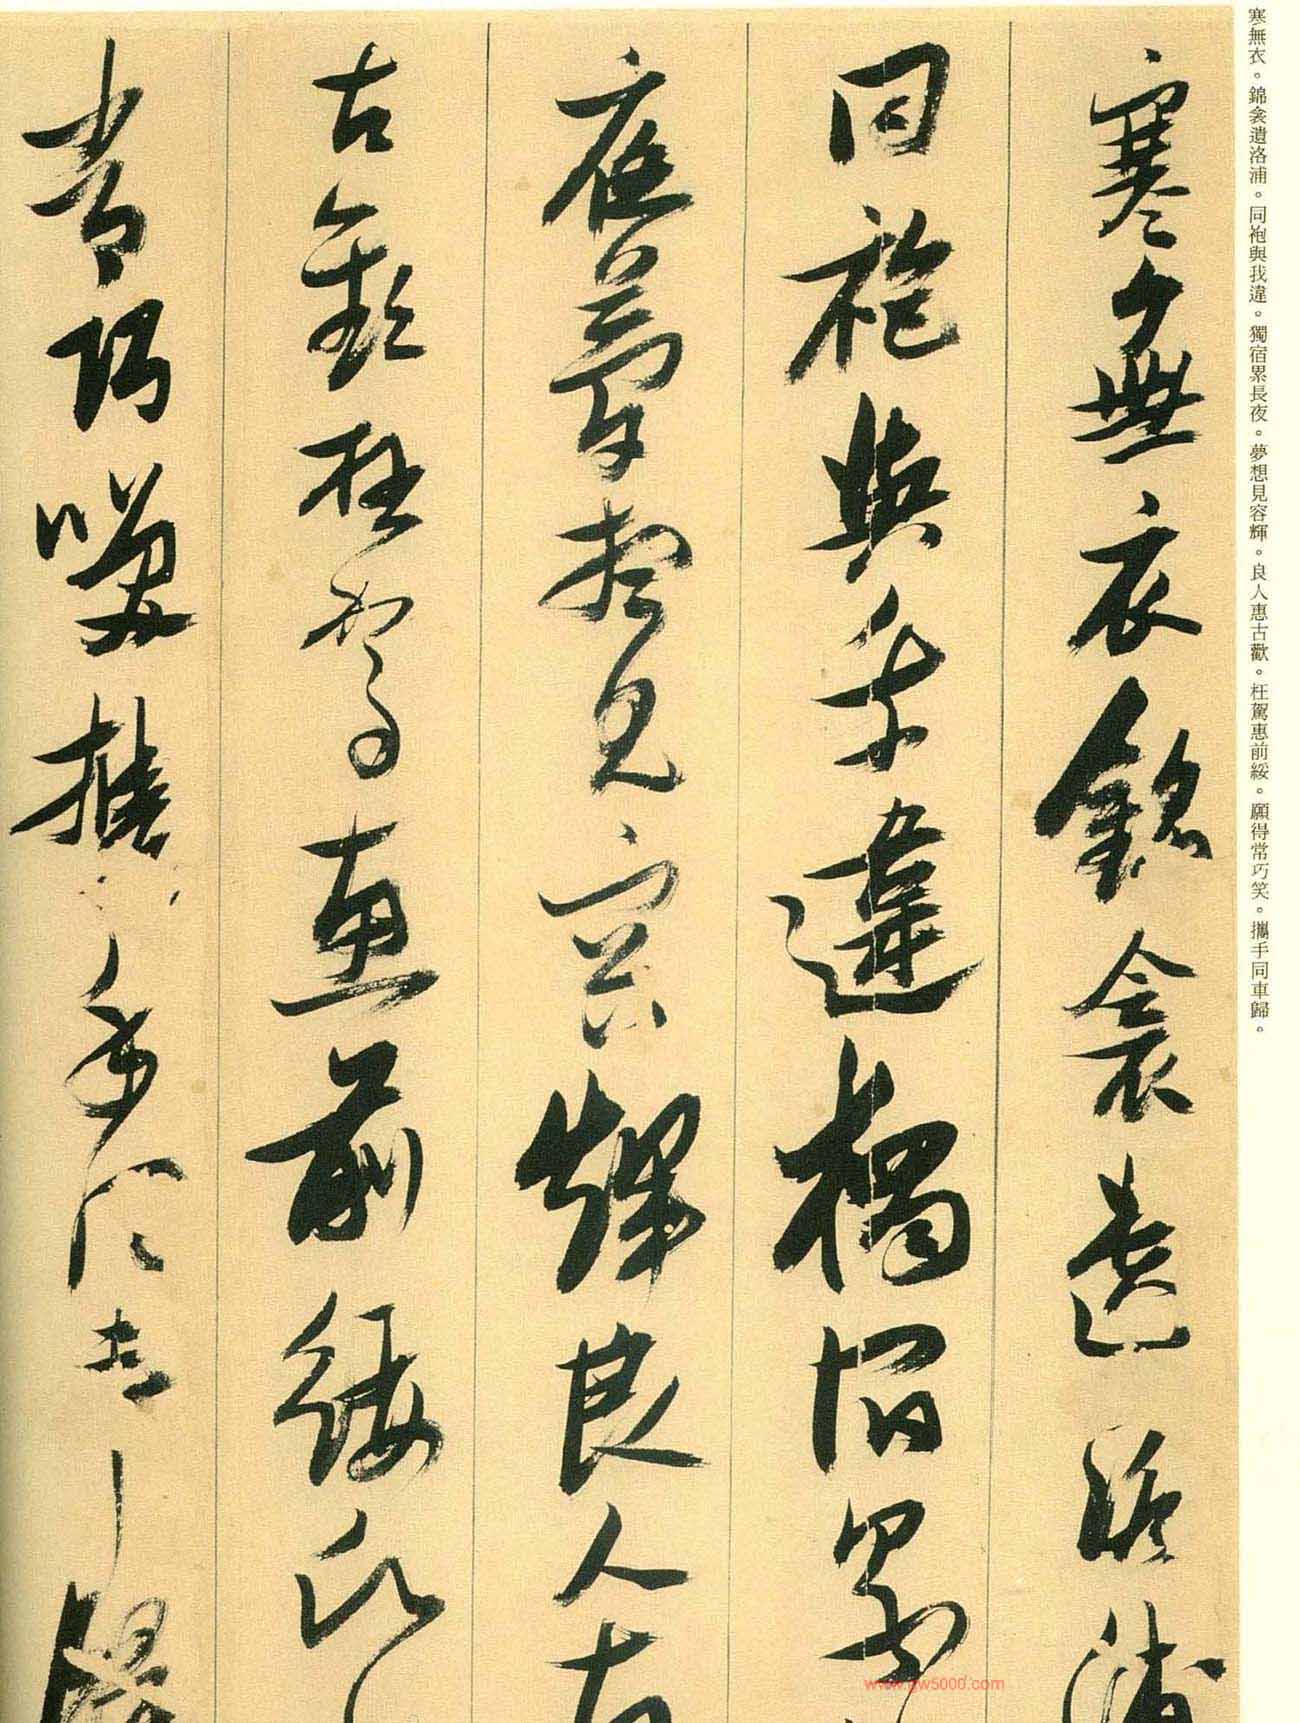 寒無衣。錦衾遺洛浦。同袍與我違。獨宿累長夜。夢想見容輝。良人惠古歡。枉駕惠前綏。願得常巧笑。攜手同車歸。
寒無衣錦衾遺洛浦
同袍與我違獨宿累
夜夢想見容輝良人
古歡枉駕惠前綏願
常巧笑攜手同車歸
www.gw5000.com